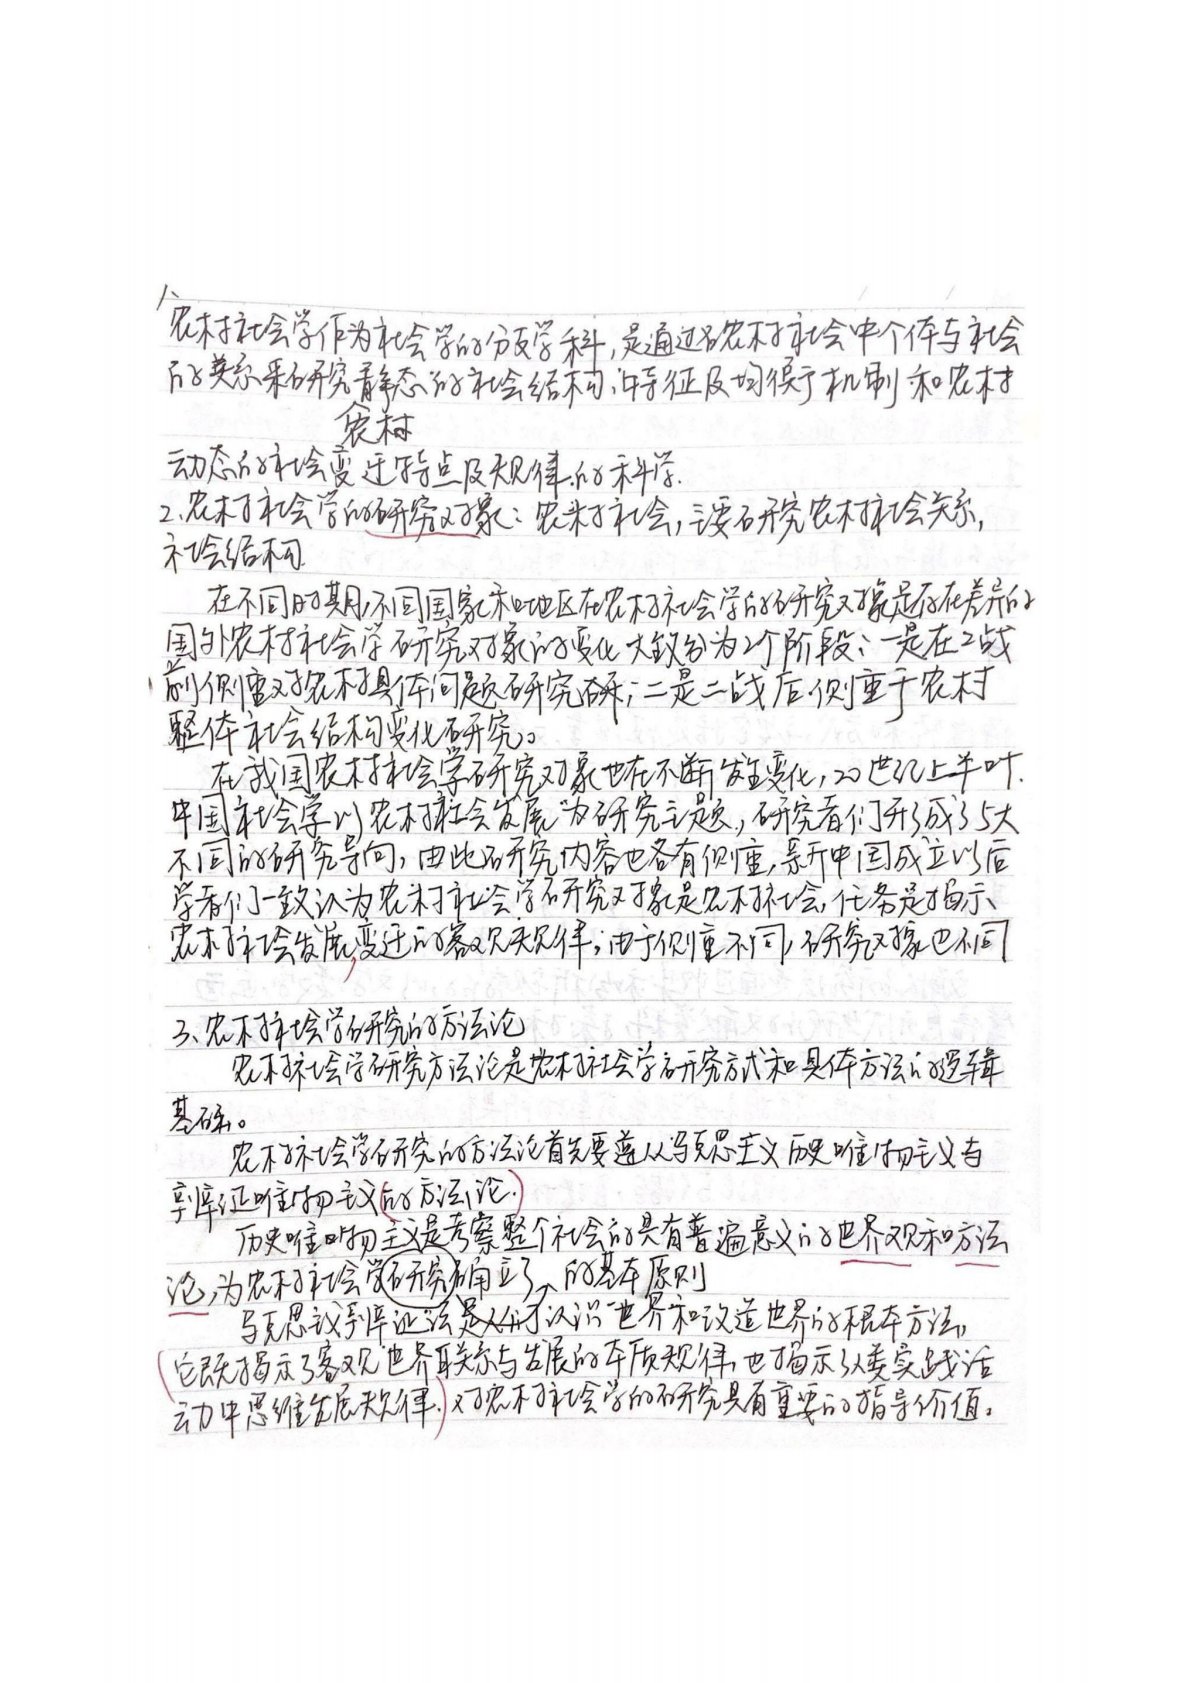 1、
农村社会学作为社会学的分支学科，是通过农村社会中个体与社会
的关系来研究静态的社会结构、特征及均衡机制和农村
农村
动态的社会变迁特点及规律的科学.
2、农村社会学的研究对象：农村社会，主要研究农村社会关系，
社会结构.
在不同时期,不同国家和地区在农村社会学的研究对象是存在差异的
国外农村社会学研究对象的变化大致分为2个阶段：一是在2战
前侧重对农村具体问题研究；二是二战后侧重于农村
整体社会结构变化研究。
在我国农村社会学研究对象也在不断发生变化，20世纪上半叶.
中国社会学以"农村社会发展"为研究主题，研究者们形成了5大
不同的研究导向，由此研究内容也各有侧重，新中国成立以后
学者们一致认为农村社会学研究对象是农村社会，任务是揭示
农村社会发展,变迁的客观规律；由于侧重不同，研究对象也不同
3、农村社会学研究的方法论
农村社会学研究方法论是农村社会学研究方式和具体方法的逻辑
基础。
农村社会学研究的方法论首先要遵从马克思主义历史唯物主义与
辩证唯物主义(的方法论.)
历史唯物主义是考察整个社会的具有普遍意义的世界观和方法
论，为农村社会学研究确立了的基本原则
马克思主义辩证法是人们认识世界和改造世界的根本方法，
(它既揭示了客观世界联系与发展的本质规律，也揭示了人类实践活
动中思维发展规律.)对农村社会学的研究具有重要的指导价值。